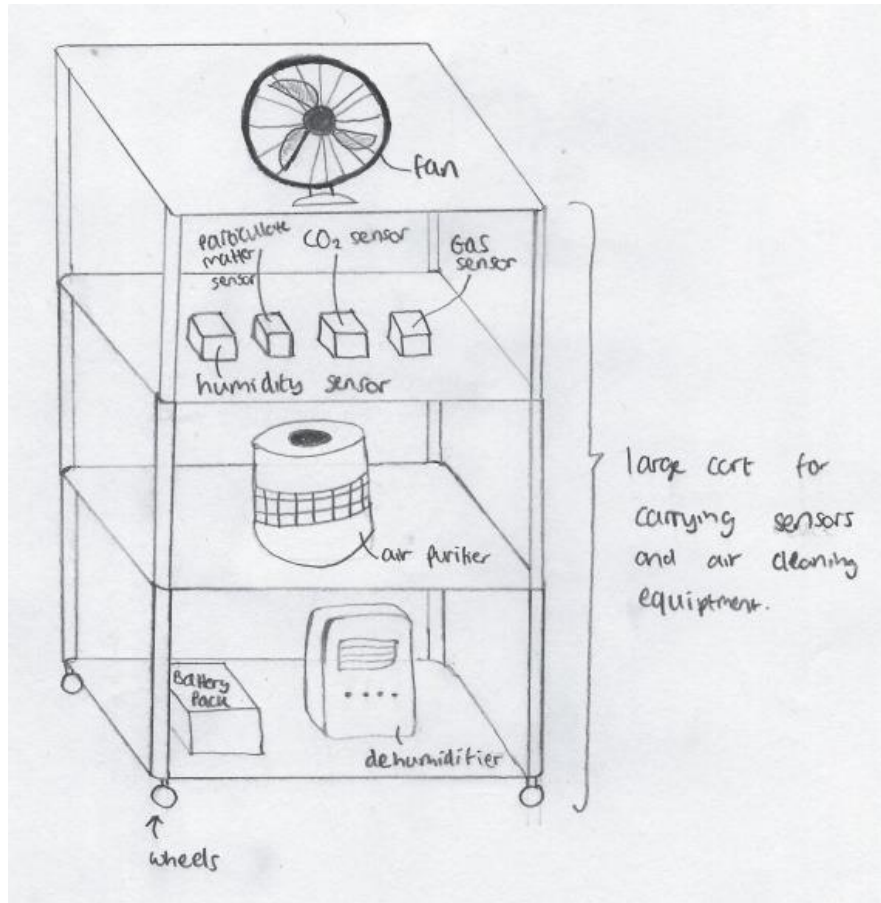 fan
particulate
matter
sensor
CO₂ sensor
Gas
sensor
humidity sensor
air purifier
large cart for
carrying sensors
and air cleaning
equiptment.
Battery
Pack
dehumidifier
wheels